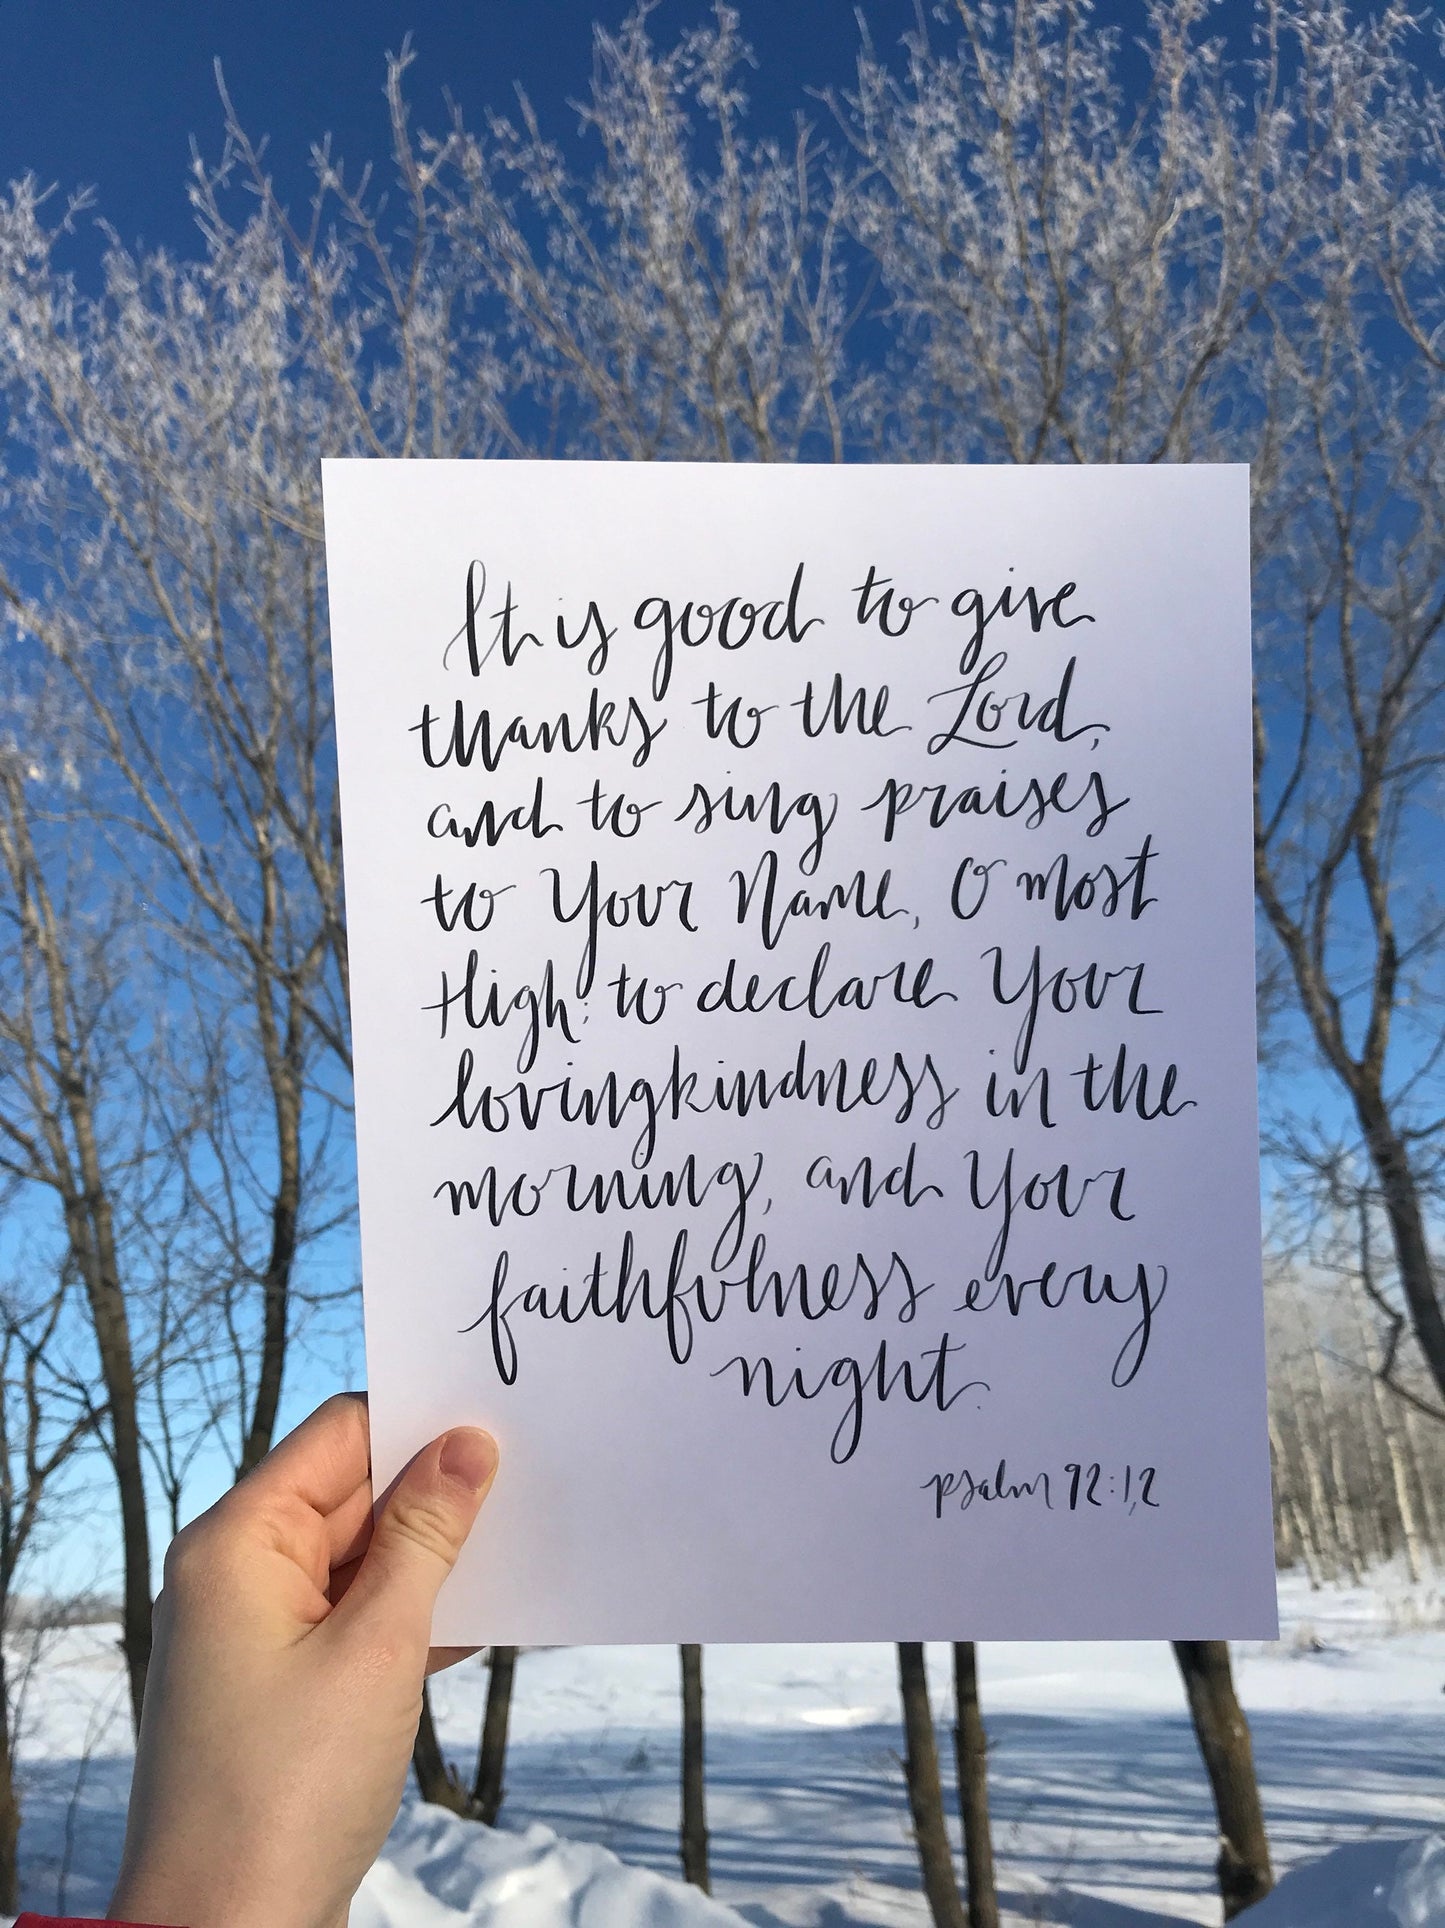 It is good to give
thanks to the Lord,
and to sing praises
to Your Name, O most
High: to declare Your
lovingkindness in the
morning, and Your
faithfulness every
night.
psalm 92:1,2